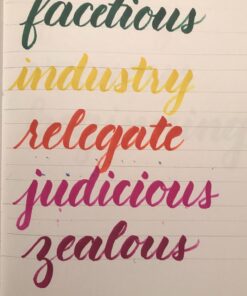 facetious
industry
relegate
judicious
zealous